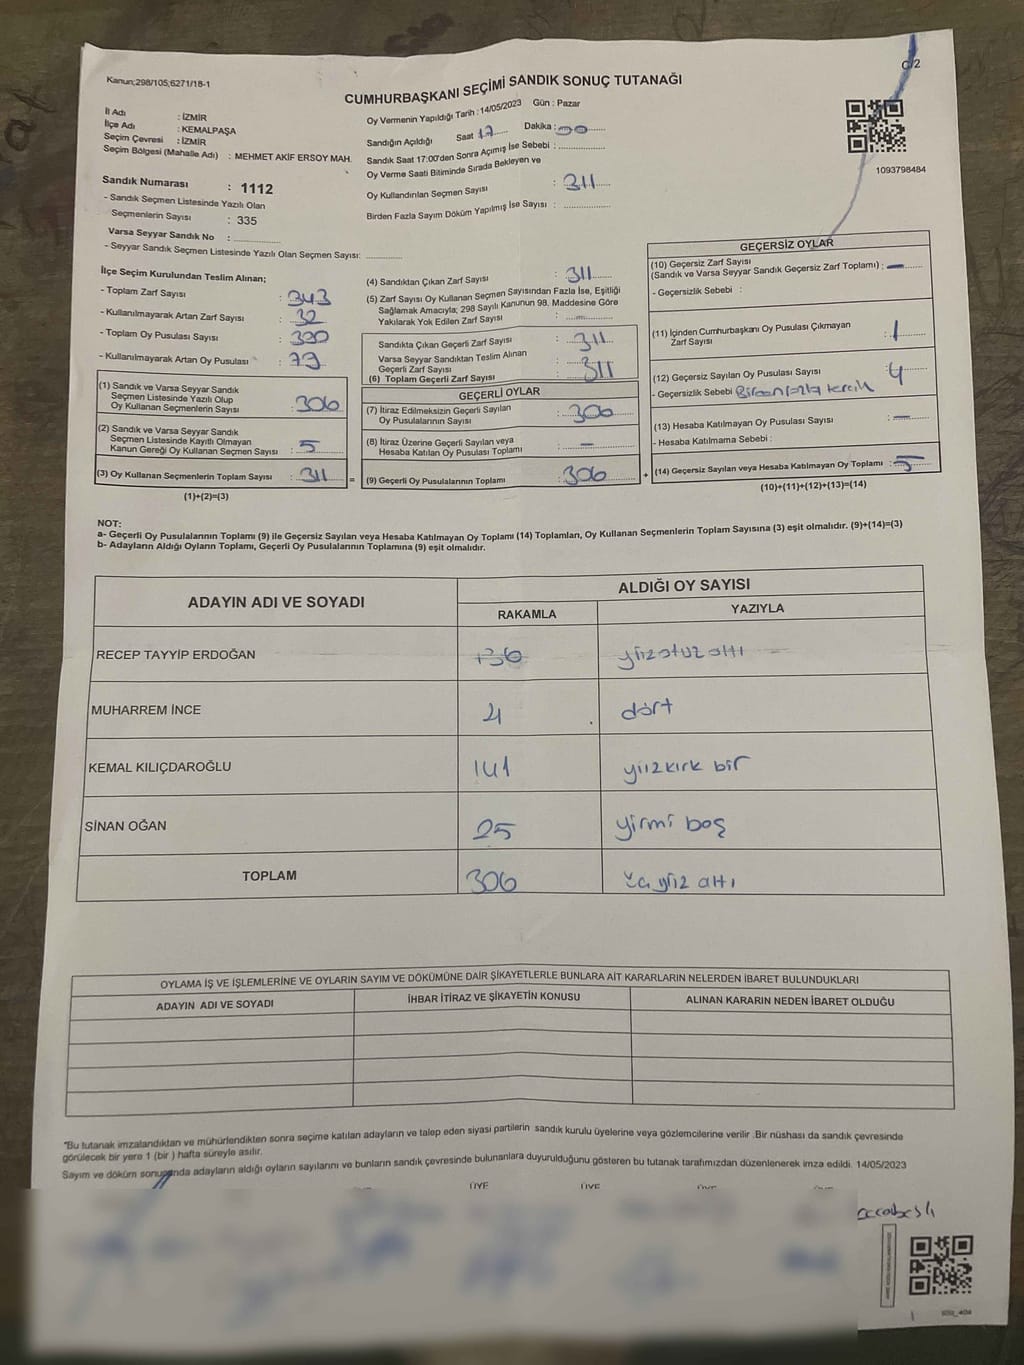 Kanun;298/105;6271/18-1
C/2
CUMHURBAŞKANI SEÇİMİ SANDIK SONUÇ TUTANAĞI
1093798484
İl Adı : İZMİR
İlçe Adı : KEMALPAŞA
Seçim Çevresi : İZMİR
Seçim Bölgesi (Mahalle Adı) : MEHMET AKİF ERSOY MAH.
Sandık Numarası : 1112
- Sandık Seçmen Listesinde Yazılı Olan
Seçmenlerin Sayısı : 335
Varsa Seyyar Sandık No :
- Seyyar Sandık Seçmen Listesinde Yazılı Olan Seçmen Sayısı:
Oy Vermenin Yapıldığı Tarih : 14/05/2023 Gün : Pazar
Sandığın Açıldığı Saat 17 Dakika : 00
Sandık Saat 17:00'den Sonra Açımış İse Sebebi :
Oy Verme Saati Bitiminde Sırada Bekleyen ve
Oy Kullandırılan Seçmen Sayısı : 311
Birden Fazla Sayım Döküm Yapılmış İse Sayısı :
İlçe Seçim Kurulundan Teslim Alınan;
- Toplam Zarf Sayısı : 343
- Kullanılmayarak Artan Zarf Sayısı : 32
- Toplam Oy Pusulası Sayısı :
- Kullanılmayarak Artan Oy Pusulası :
(1) Sandık ve Varsa Seyyar Sandık
Seçmen Listesinde Yazılı Olup
Oy Kullanan Seçmenlerin Sayısı : 306
(2) Sandık ve Varsa Seyyar Sandık
Seçmen Listesinde Kayıtlı Olmayan
Kanun Gereği Oy Kullanan Seçmen Sayısı : 5
(3) Oy Kullanan Seçmenlerin Toplam Sayısı : 311 =
(1)+(2)=(3)
(4) Sandıktan Çıkan Zarf Sayısı : 311
(5) Zarf Sayısı Oy Kullanan Seçmen Sayısından Fazla İse, Eşitliği
Sağlamak Amacıyla; 298 Sayılı Kanunun 98. Maddesine Göre
Yakılarak Yok Edilen Zarf Sayısı : —
Sandıkta Çıkan Geçerli Zarf Sayısı : 311
Varsa Seyyar Sandıktan Teslim Alınan
Geçerli Zarf Sayısı
(6) Toplam Geçerli Zarf Sayısı : 311
GEÇERLİ OYLAR
(7) İtiraz Edilmeksizin Geçerli Sayılan
Oy Pusulalarının Sayısı : 306
(8) İtiraz Üzerine Geçerli Sayılan veya
Hesaba Katılan Oy Pusulası Toplamı : —
(9) Geçerli Oy Pusulalarının Toplamı : 306 +
GEÇERSİZ OYLAR
(10) Geçersiz Zarf Sayısı
(Sandık ve Varsa Seyyar Sandık Geçersiz Zarf Toplamı) : —
- Geçersizlik Sebebi :
(11) İçinden Cumhurbaşkanı Oy Pusulası Çıkmayan
Zarf Sayısı : 1
(12) Geçersiz Sayılan Oy Pusulası Sayısı : 4
- Geçersizlik Sebebi Birden fazla tercih
(13) Hesaba Katılmayan Oy Pusulası Sayısı : —
- Hesaba Katılmama Sebebi :
(14) Geçersiz Sayılan veya Hesaba Katılmayan Oy Toplamı : 5
(10)+(11)+(12)+(13)=(14)
NOT:
a- Geçerli Oy Pusulalarının Toplamı (9) ile Geçersiz Sayılan veya Hesaba Katılmayan Oy Toplamı (14) Toplamları, Oy Kullanan Seçmenlerin Toplam Sayısına (3) eşit olmalıdır. (9)+(14)=(3)
b- Adayların Aldığı Oyların Toplamı, Geçerli Oy Pusulalarının Toplamına (9) eşit olmalıdır.
ADAYIN ADI VE SOYADI ALDIĞI OY SAYISI
RAKAMLA YAZIYLA
RECEP TAYYİP ERDOĞAN 136 yüzotuz altı
MUHARREM İNCE 4 dört
KEMAL KILIÇDAROĞLU 141 yüzkırk bir
SİNAN OĞAN 25 yirmi beş
TOPLAM 306 üçyüz altı
OYLAMA İŞ VE İŞLEMLERİNE VE OYLARIN SAYIM VE DÖKÜMÜNE DAİR ŞİKAYETLERLE BUNLARA AİT KARARLARIN NELERDEN İBARET BULUNDUKLARI
ADAYIN ADI VE SOYADI İHBAR İTİRAZ VE ŞİKAYETİN KONUSU ALINAN KARARIN NEDEN İBARET OLDUĞU
*Bu tutanak imzalandıktan ve mühürlendikten sonra seçime katılan adayların ve talep eden siyasi partilerin sandık kurulu üyelerine veya gözlemcilerine verilir .Bir nüshası da sandık çevresinde
görülecek bir yere 1 (bir ) hafta süreyle asılır.
Sayım ve döküm sonucunda adayların aldığı oyların sayılarını ve bunların sandık çevresinde bulunanlara duyurulduğunu gösteren bu tutanak tarafımızdan düzenlenerek imza edildi. 14/05/2023
ÜYE ÜYE